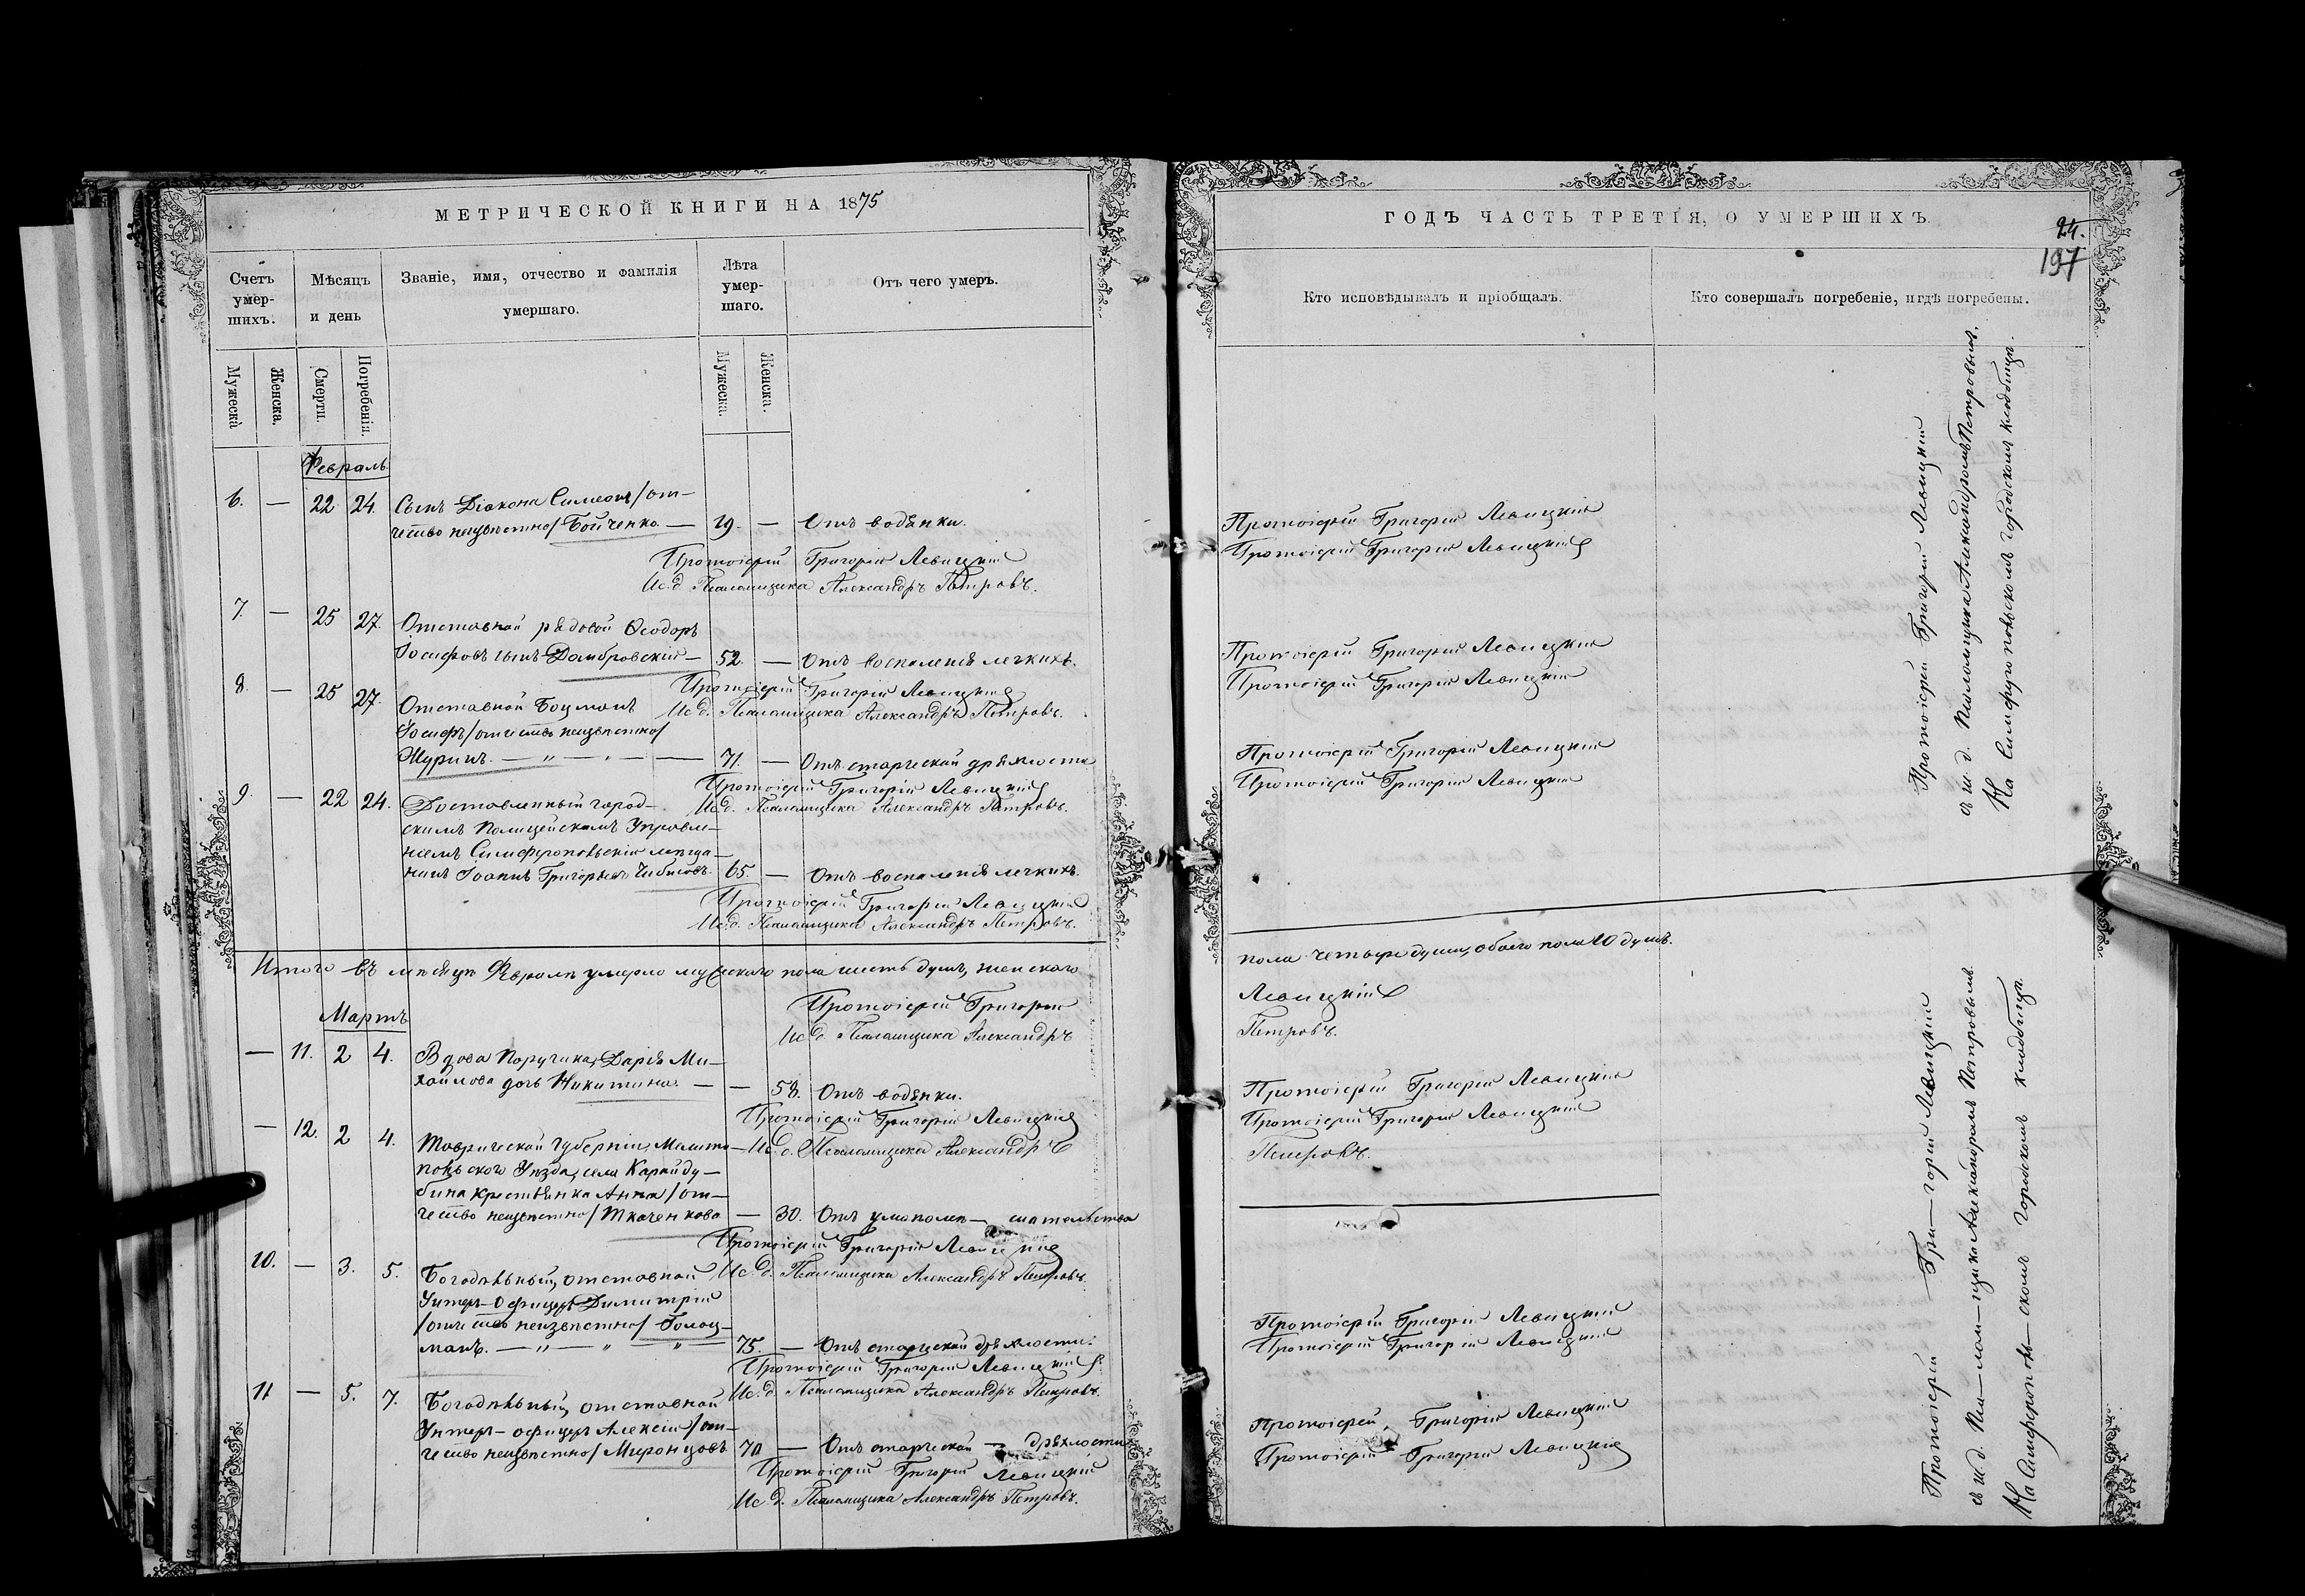 МЕТРИЧЕСКОЙ КНИГИ НА 1875
Счетъ умер-шихъ.
Мѣсяцъ и день
Званіе, имя, отчество и фамилія умершаго.
Лѣта умер-шаго.
Отъ чего умеръ.
Мужеска
Женска.
Смерти.
Погребенія.
Мужеска.
Женска.
Февраль
6. — 22 24. Сынъ Діакона Симеонъ /от-
чество неизвѣстно/ Бойченко — 19. — Отъ водянки.
Протоіерей Григорій Левицкій
Ис. д. Псаломщика Александръ Петровъ.
7. — 25 27. Отставной рядовой Ѳеодоръ
Іосифовъ сынъ Домбровскій — 52. — Отъ воспаленія легкихъ.
Протоіерей Григорій Левицкій
Ис. д. Псаломщика Александръ Петровъ.
8. — 25 27. Отставной Боцманъ
Іосифъ /отчество неизвѣстно/
Журинъ. — „ — „ — — 71. — Отъ старческой дряхлости
Протоіерей Григорій Левицкій
Ис. д. Псаломщика Александръ Петровъ.
9. — 22 24. Доставленный город-
скимъ Полицейскимъ Управле-
ніемъ Симферопольскій мѣща-
нинъ Іоаннъ Григорьевъ 65. — Отъ воспаленія легкихъ.
Протоіерей Григорій Левицкій
Ис. д. Псаломщика Александръ Петровъ.
Итого въ мѣсяцѣ Февралѣ умерло мужескаго пола шесть душъ, женскаго
Протоіерей Григорій
Ис. д. Псаломщика Александръ
Мартъ
— 11. 2 4. Вдова Поручика, Дарія Ми-
хайлова дочь Никитина. — — 58. Отъ водянки.
Протоіерей Григорій Левицкій
Ис. д. Псаломщика Александръ
— 12. 2 4. Таврической Губерніи, Мелито-
польскаго Уѣзда, села Карайду-
бина крестьянка Анна /от-
чество неизвѣстно/ Ткаченкова — 30. Отъ умопомѣ— шательства
Протоіерей Григорій Левицкій
Ис. д. Псаломщика Александръ Петровъ.
10. — 3. 5. Богадѣльный, отставной
Унтеръ-Офицеръ Димитрій
/отчество неизвѣстно/ Голоц-
манъ. — „ — „ — „ — 75. — Отъ старческой дряхлости.
Протоіерей Григорій Левицкій
Ис. д. Псаломщика Александръ Петровъ.
11 — 5. 7. Богадѣльный, отставной
Унтеръ-офицеръ Алексій /от-
чество неизвѣстно/ Миронцовъ 70 — Отъ старческой — дряхлости
Протоіерей Григорій Левицкій
Ис. д. Псаломщика Александръ Петровъ.
ГОДЪ ЧАСТЬ ТРЕТІЯ, О УМЕРШИХЪ.
24.
197
Кто исповѣдывалъ и пріобщалъ.
Кто совершалъ погребеніе, и гдѣ погребены.
Протоіерей Григорій Левицкій
Протоіерей Григорій Левицкій
Протоіерей Григорій Левицкій
Протоіерей Григорій Левицкій
Протоіерей Григорій Левицкій
Протоіерей Григорій Левицкій
Протоіерей Григорій Левицкій
съ и. д. Псаломщика Александромъ Петровымъ.
На Симферопольскомъ городскомъ кладбищѣ.
пола четыре души, обоего пола 10 душъ.
Левицкій
Петровъ.
Протоіерей Григорій Левицкій
Протоіерей Григорій Левицкій
Петровъ.
Протоіерей Григорій Левицкій
Протоіерей Григорій Левицкій
Протоіерей Григорій Левицкій
Протоіерей Григорій Левицкій
Протоіерей — Гри — горій Левицкій
съ и. д. Пса — лом — щика Александромъ Петровымъ.
На Симферополь — скомъ городскомъ кладбищѣ.